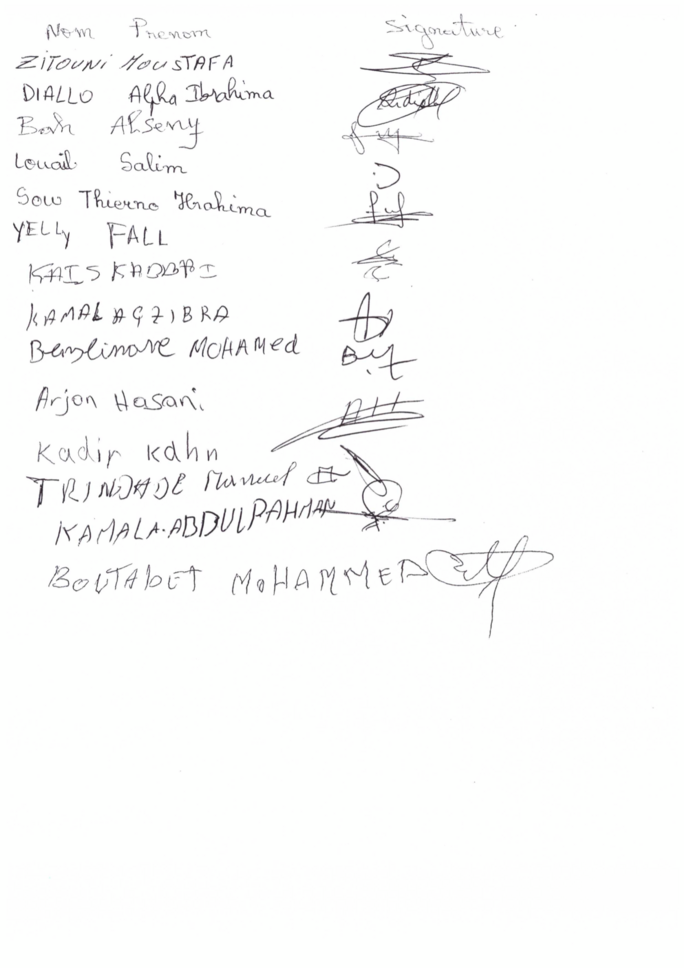 Nom Prenom Signature
ZITOUNI MOUSTAFA
DIALLO Alpha Ibrahima
Bah Alseny
Louail Salim :)
Sow Thierno Ibrahima
YELLY FALL
KAIS KADDAI
KAMAL AGZIBRA
MOHAMed
Arjon Hasani AH
Kadir Kahn
TRINDADE Manuel
KAMALA.ABDULRAHMAN
BOUTABET MOHAMMED